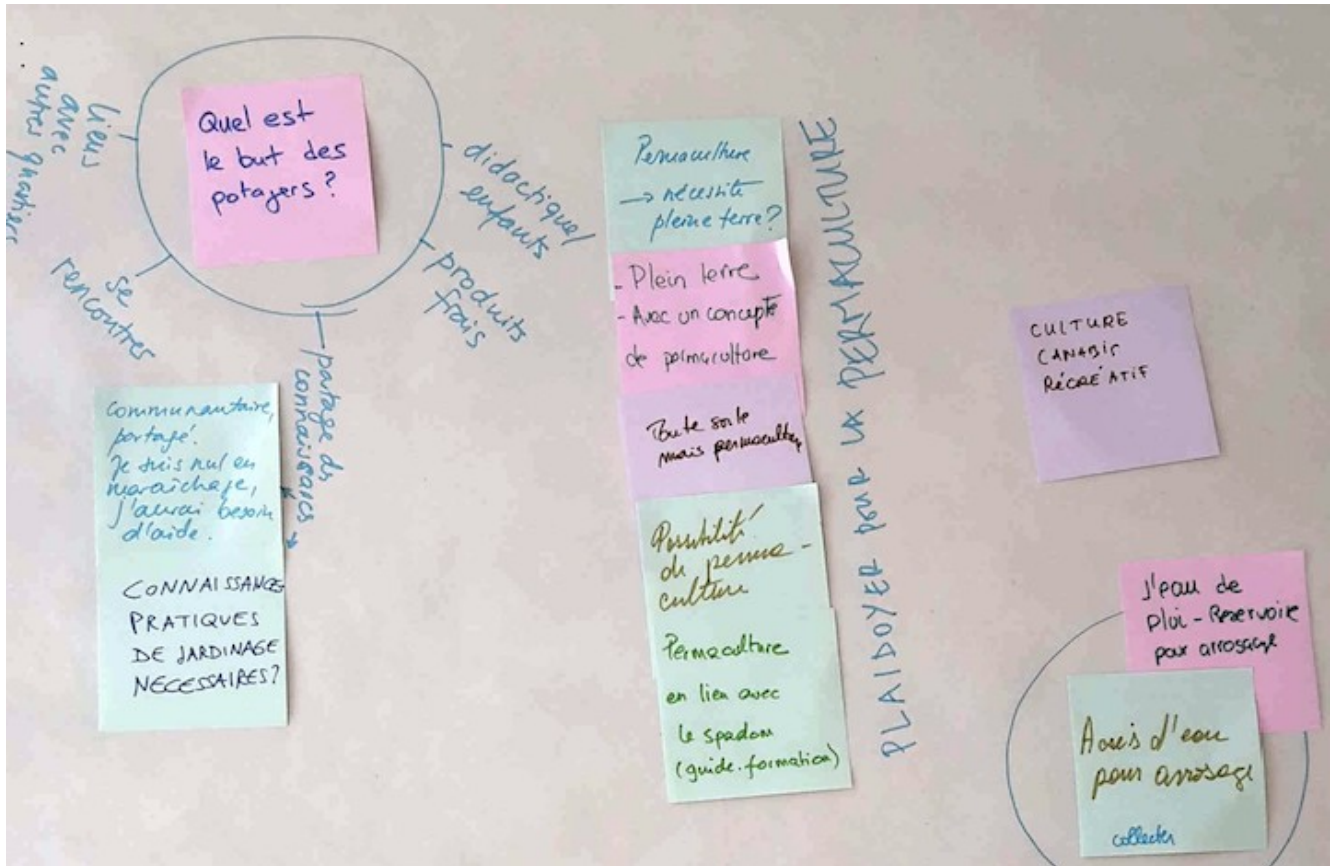 Quel est
le but des
potagers ?
liens
avec
autres quartiers
se
rencontrer
partage de
connaissances
produits
frais
didactique/
enfants
communautaire,
partagé.
Je suis nul en
maraîchage,
j'aurai besoin
d'aide.
CONNAISSANCES
PRATIQUES
DE JARDINAGE
NECESSAIRES?
Permaculture
→ nécessite
pleine terre?
- Plein terre
- Avec un concepte
de permaculture
Toute sorte
mais permaculture
Possibilité
de perma-
culture
Permaculture
en lien avec
le spadom
(guide.formation)
PLAIDOYER pour LA PERMACULTURE
CULTURE
CANABIS
RÉCRÉATIF
J'eau de
plui - Reservoire
pour arrosage
Accès d'eau
pour arrosage
collecter